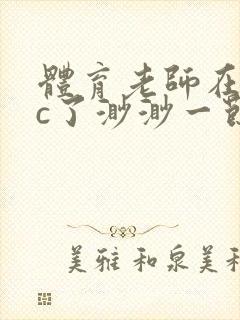 體育老師在
c了渺渺一節
美雅和泉美和